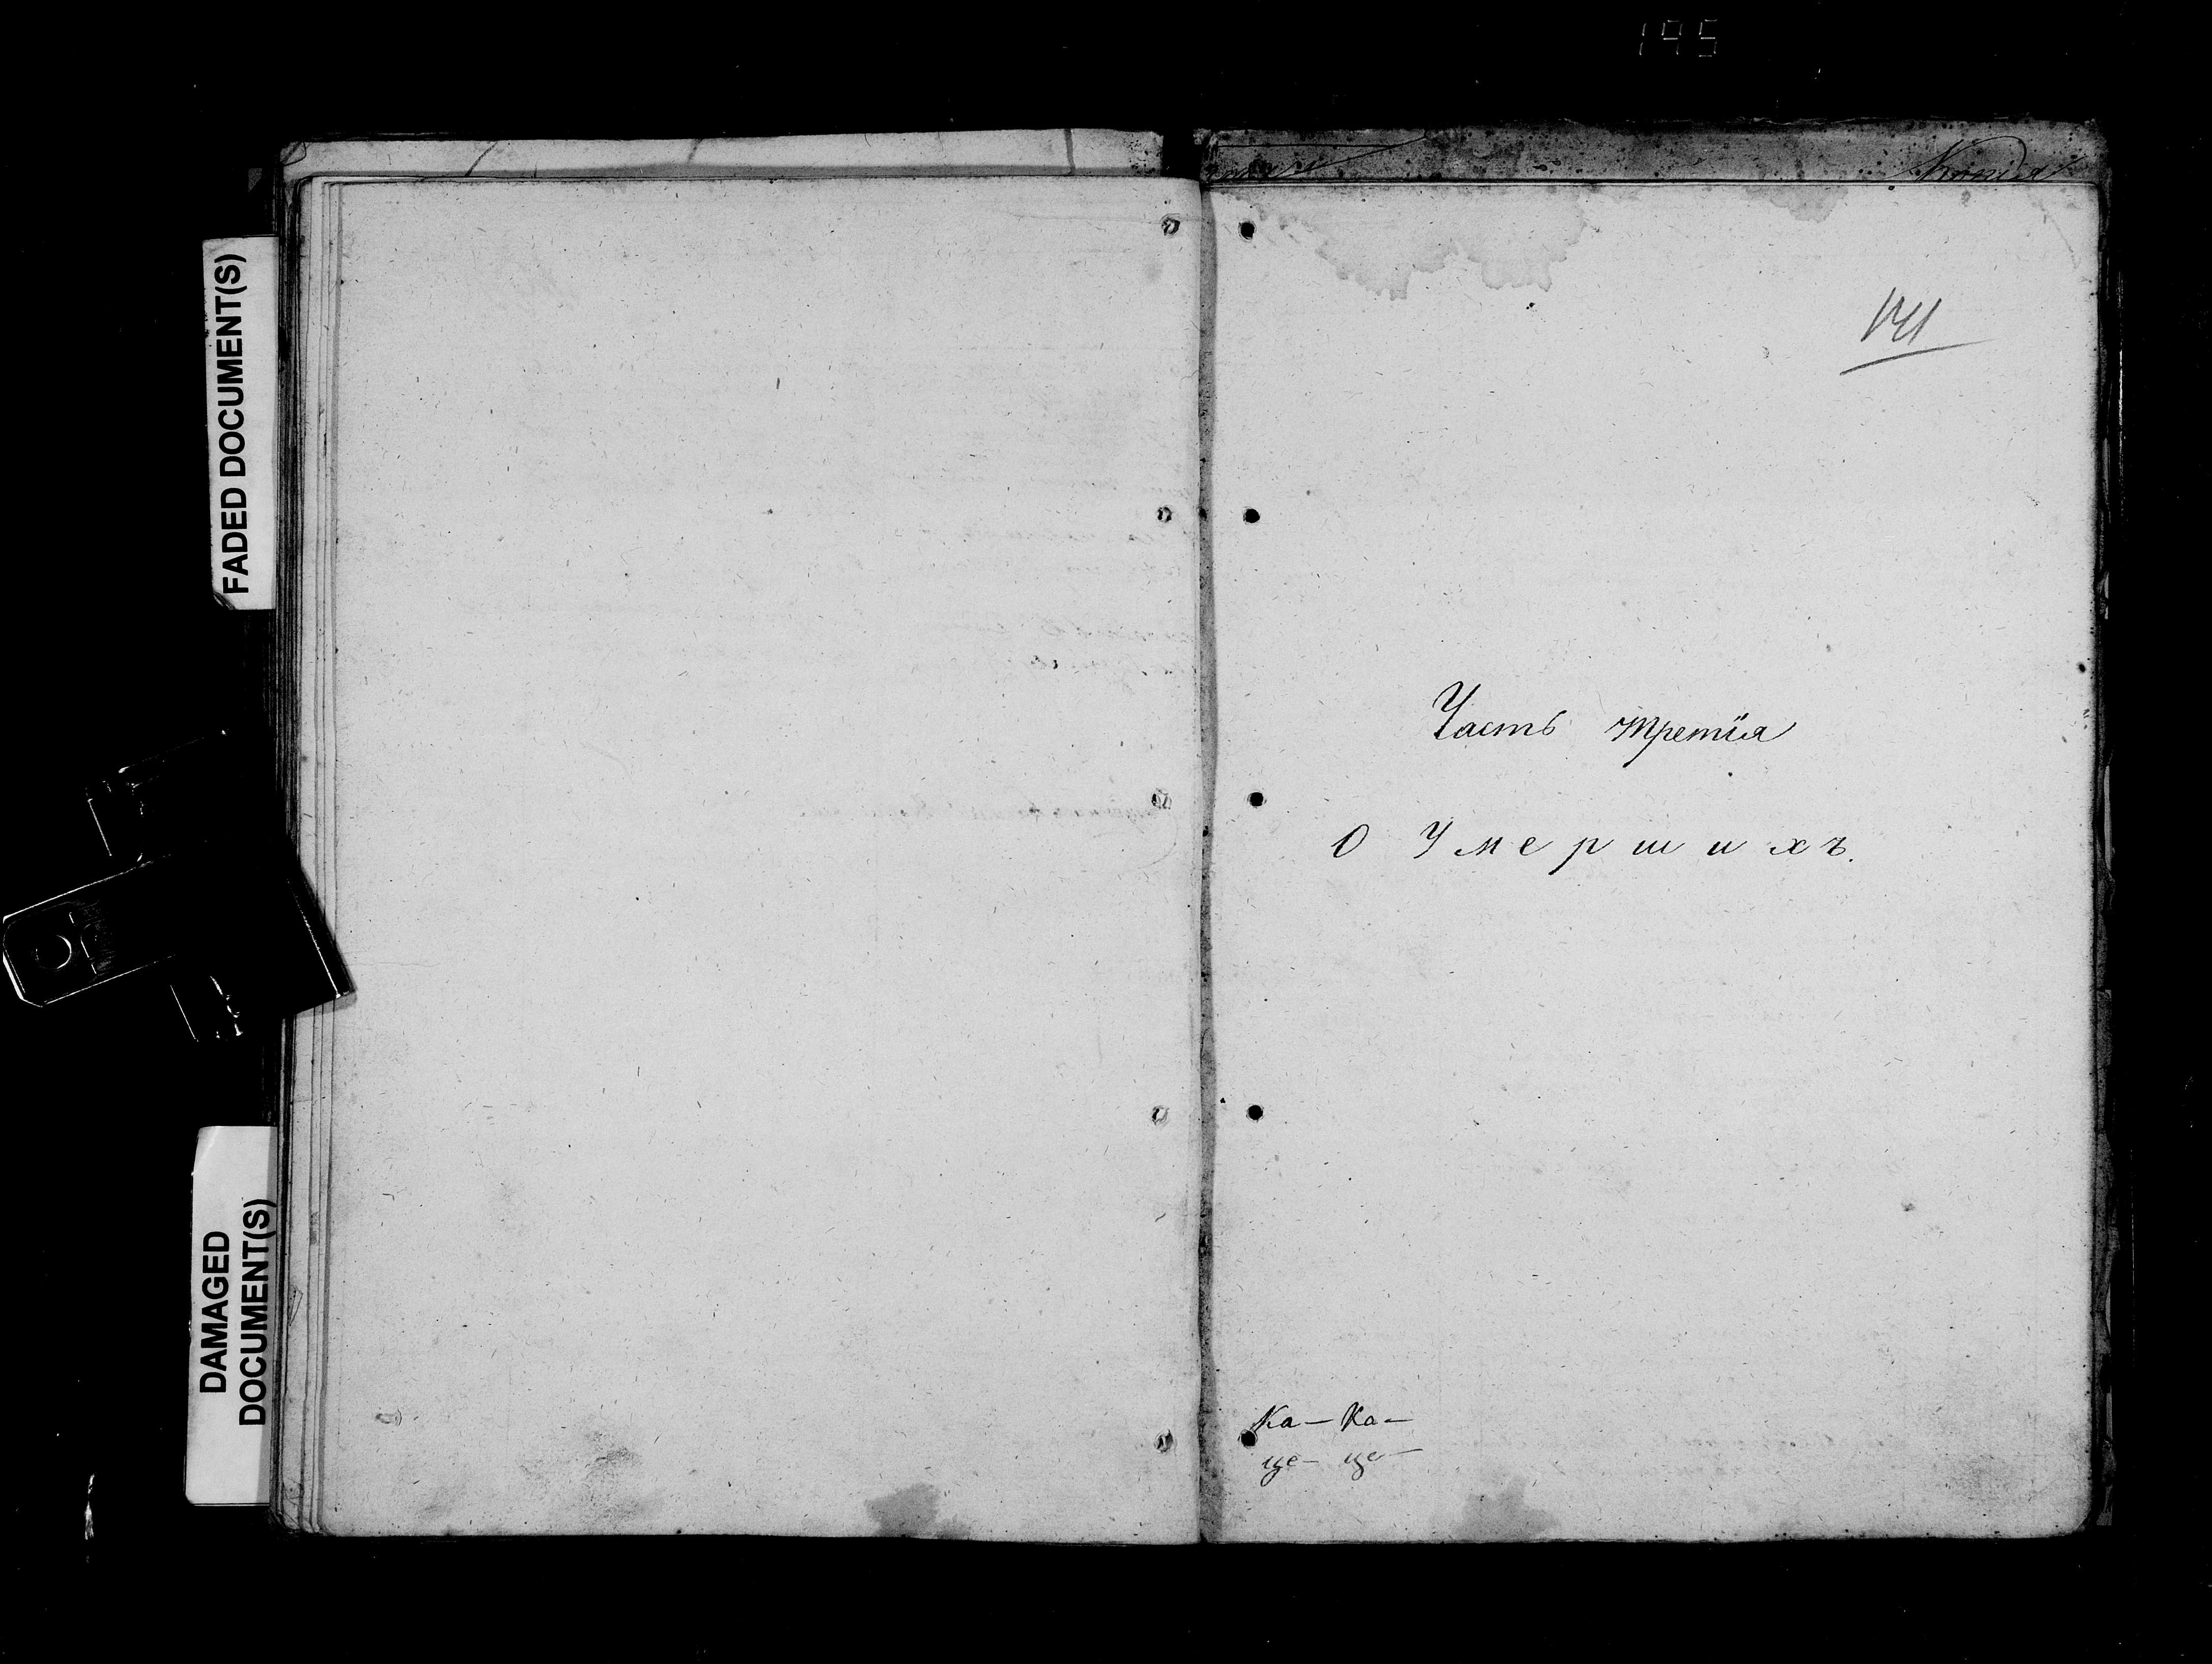 195
FADED DOCUMENT(S)
DAMAGED
DOCUMENT(S)
Копія
141
Часть третїя
О Умершихъ.
Ка— Ка—
це— це—